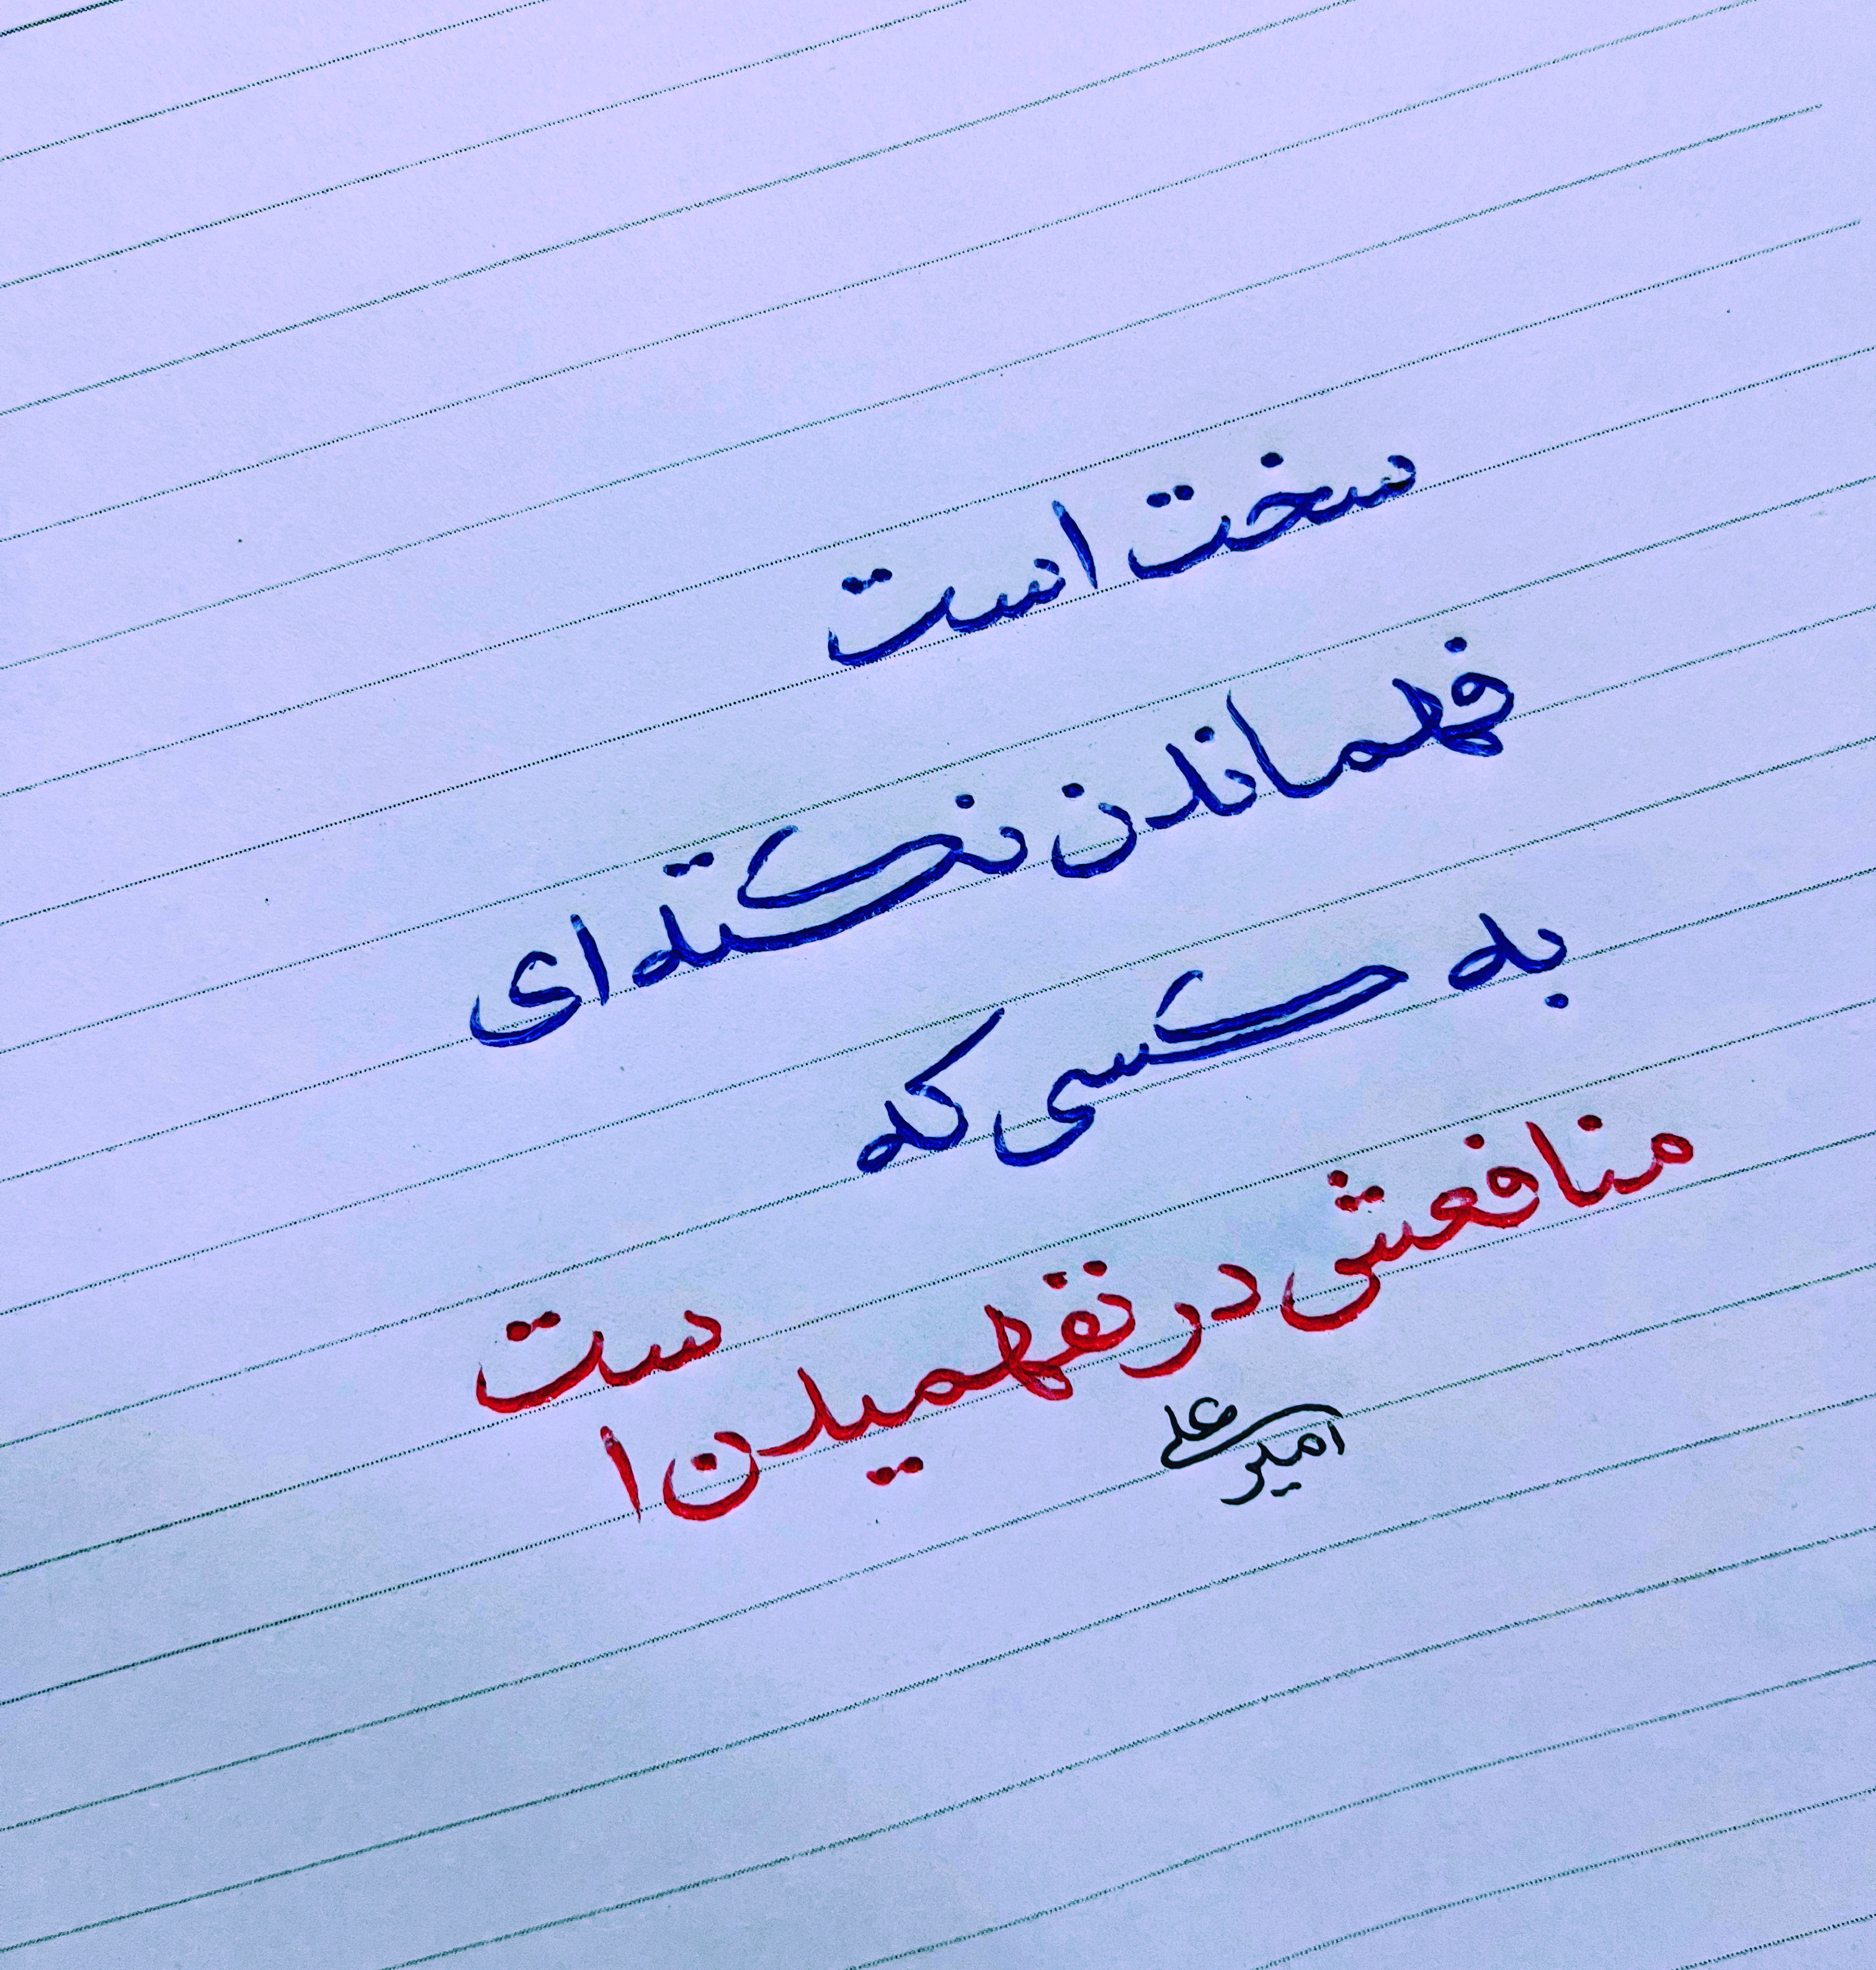 سخت است
فهماندن نکته ای
به کسی که
منافعش در نفهمیدن است
امیرعلی